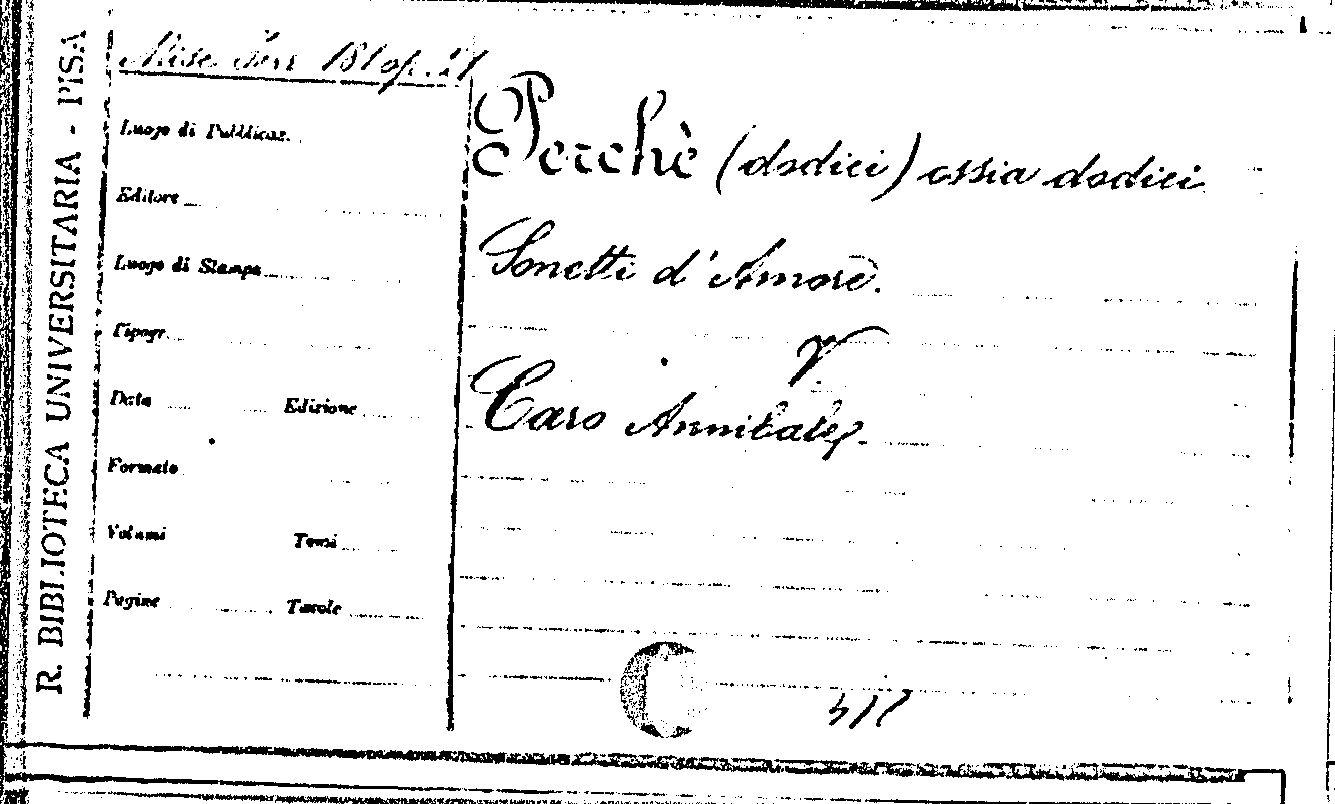 R. BIBLIOTECA UNIVERSITARIA - PISA
Misc. 181 op. 21
Luogo di Pubblicaz.
Editore
Luogo di Stampa
Tipogr.
Data Edizione
Formato
Volumi Tomi
Pagine Tavole
Perchè (dodici) ossia dodici
Sonetti d'Amore.
V
Caro Annibale